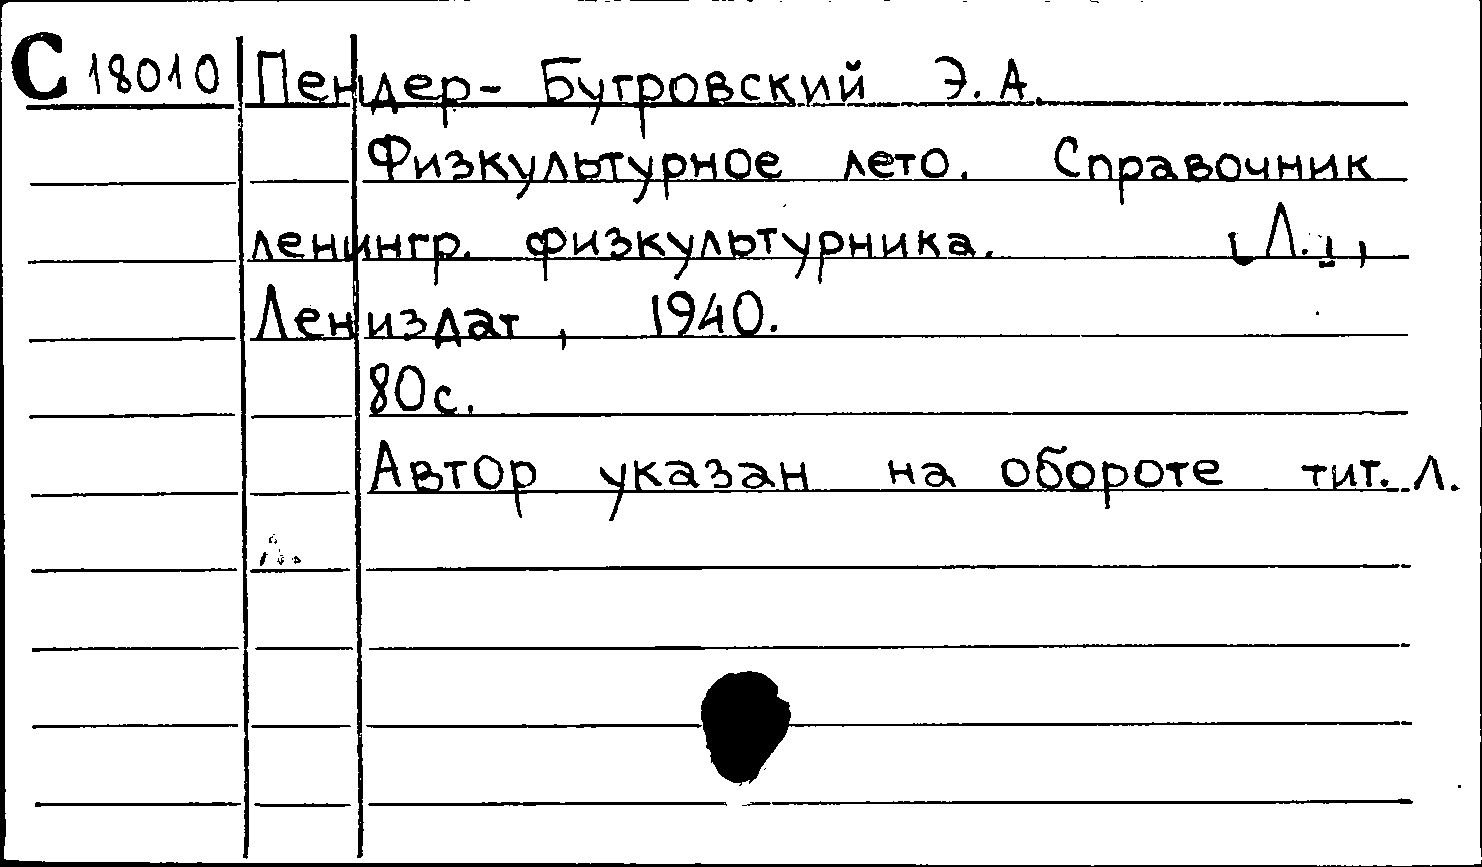 С 18010 Пендер-Бугровский Э. А.
Физкультурное лето. Справочник
ленингр. физкультурника. [Л.],
Лениздат, 1940.
80с.
Автор указан на обороте тит. л.